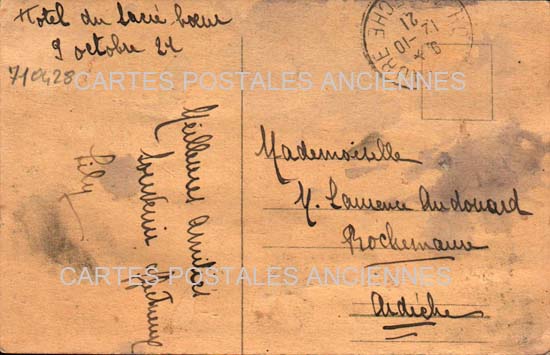 Hotel du Sacré Coeur
9 octobre 21
710428
CARTES POSTALES ANCIENNES
12-10
21
ARDECHE
Meilleures amitiés
Souvenir affectueux
Lily
Mademoiselle
M. Laurence Audouard
Rochemaure
Ardèche
CARTES POSTALES ANCIENNES